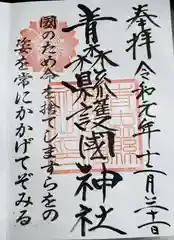 奉拝
令和元年十二月三十一日
青森縣護國神社
國のため命を捨てしますらをの
姿を常にかかげてぞみる